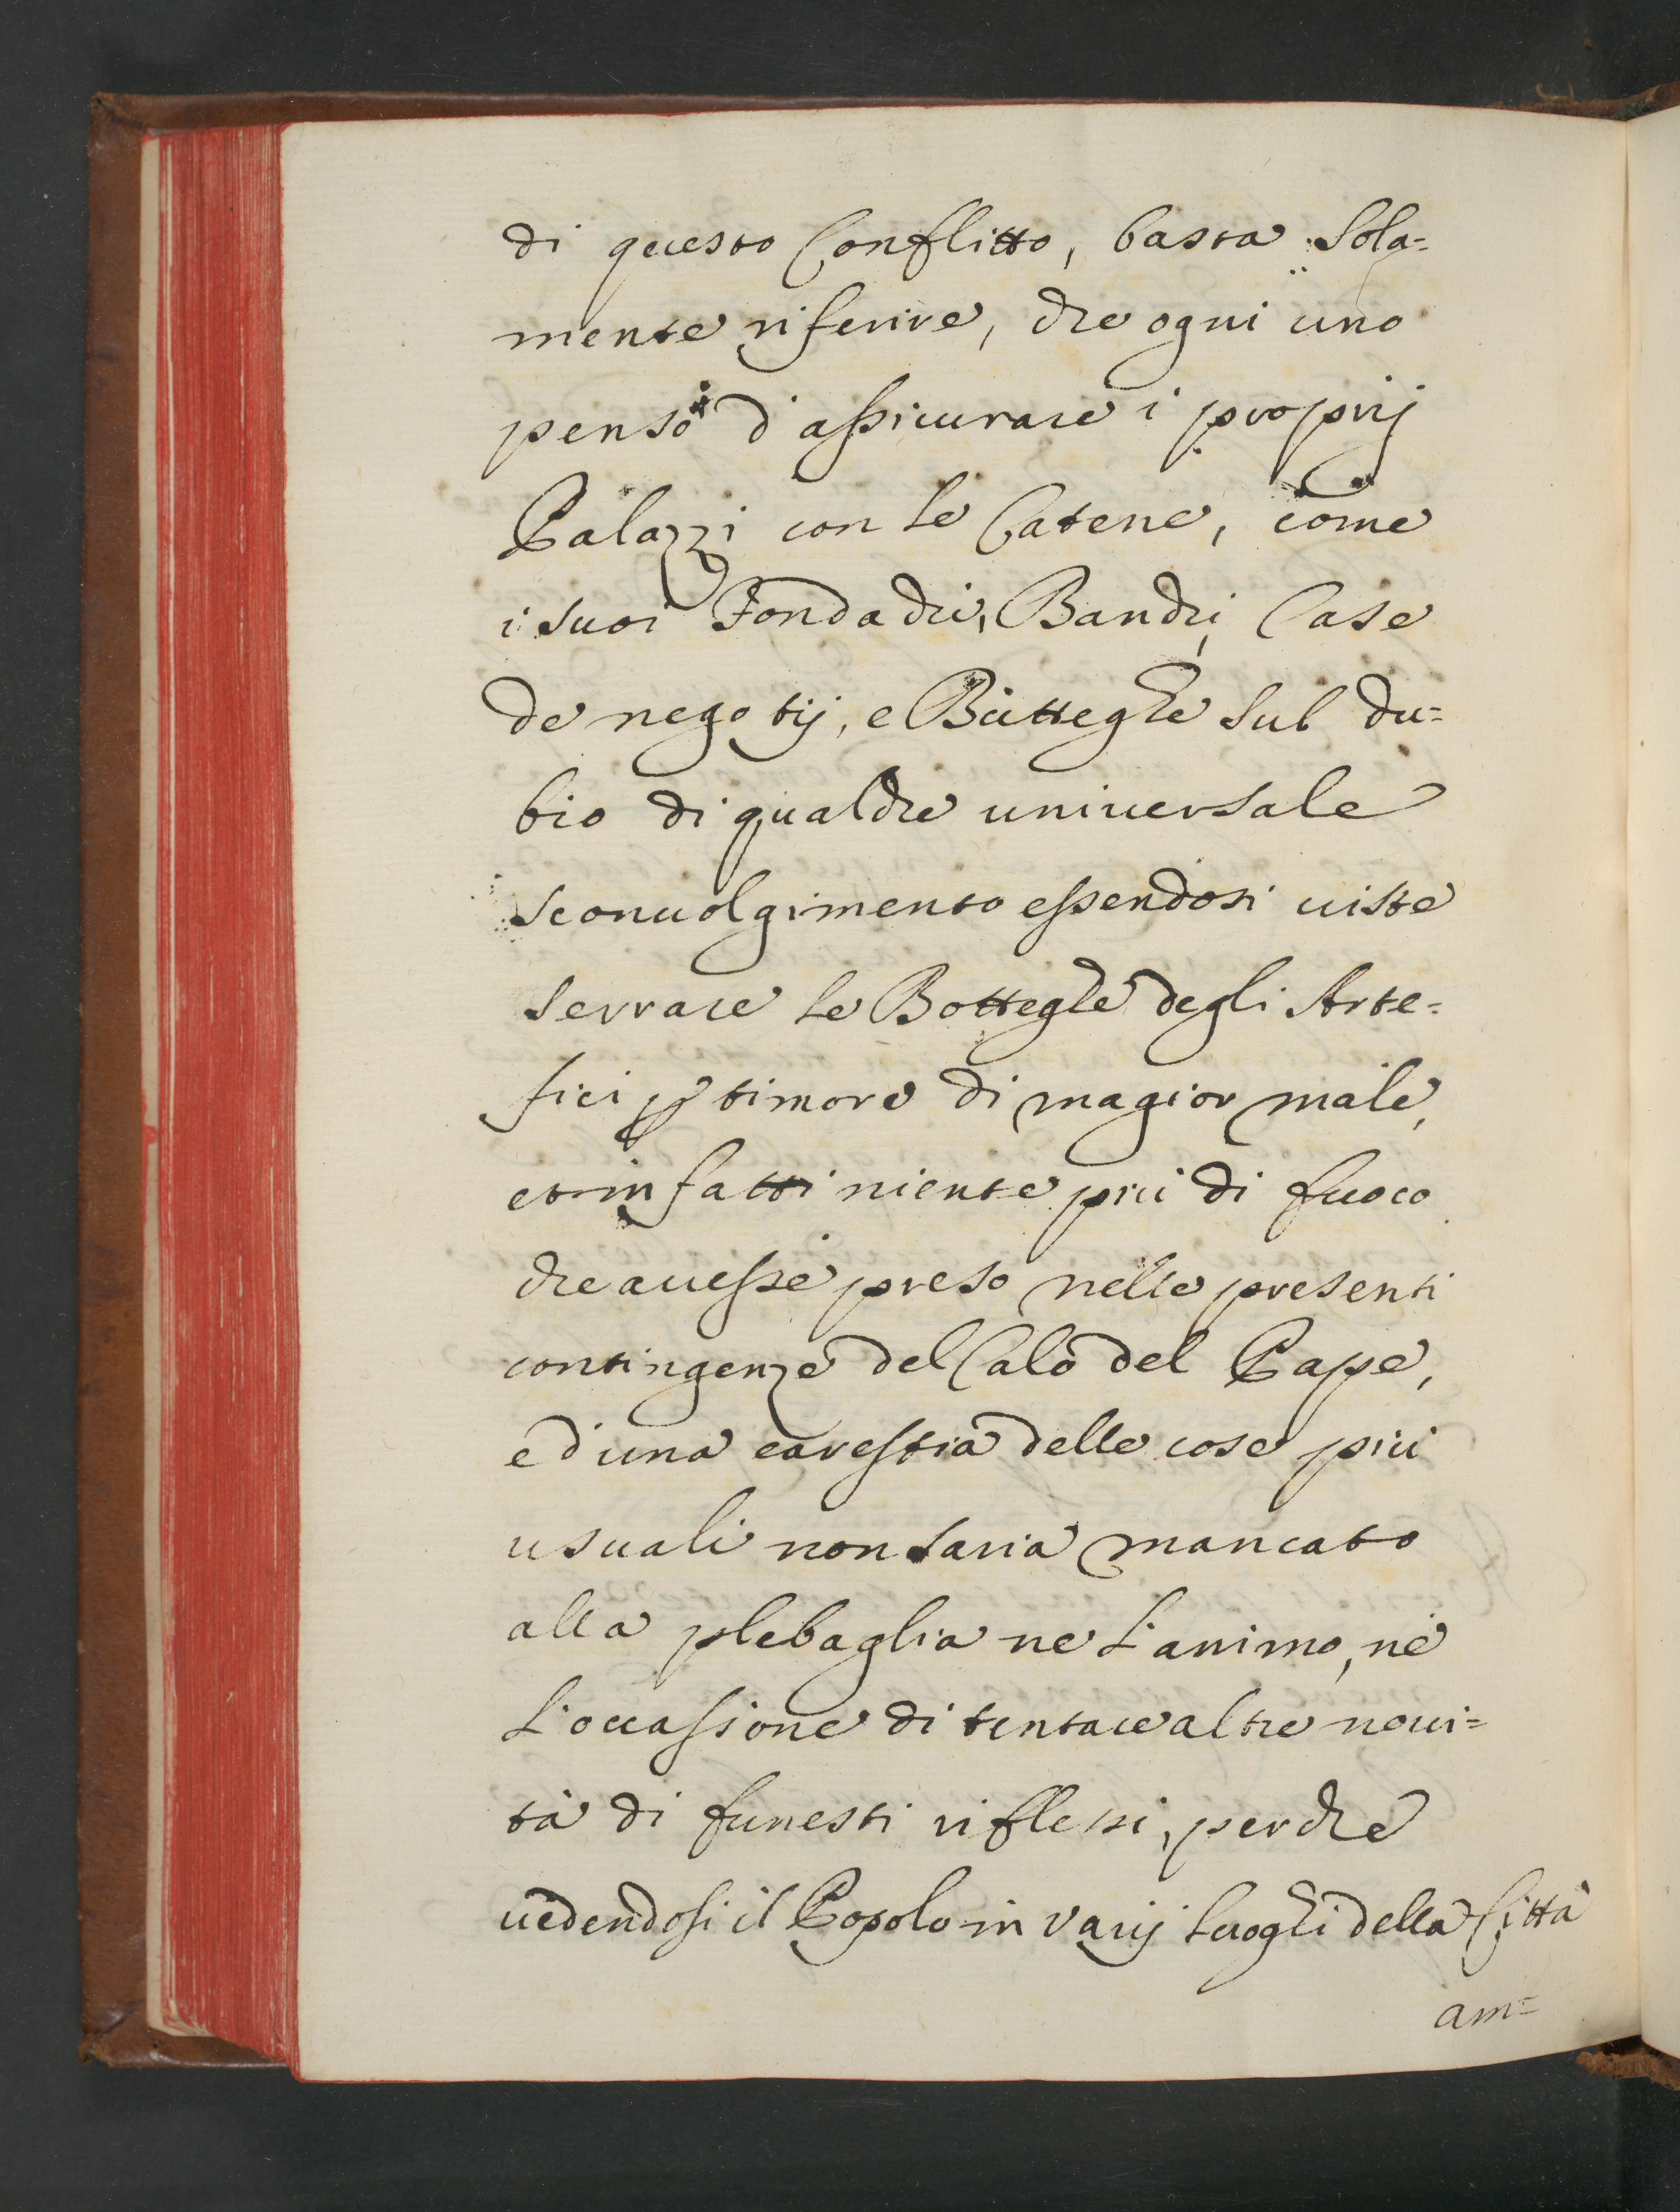 di questo Conflitto, basta sola=
mente riferire, che ogni uno
pensò d'assicurare i proprij
Palazzi con le Catene, come
i suoi Fondachi, Banchi, Case
de negotij, e Butteghe sul du=
bio di qualche uniuersale
sconuolgimento essendosi uiste
serrare le Botteghe degli Arte=
fici per timore di magior male,
et in fatti niente più di fuoco
che auesse preso nelle presenti
contingenze del Calo del Pape,
e d'una carestia delle cose più
usuali non saria mancato
alla plebaglia ne l'animo, nè
l'occasione di tentare altre noui=
tà di funesti riflessi, perchè
uedendosi il Popolo in varij luoghi della Città
am=